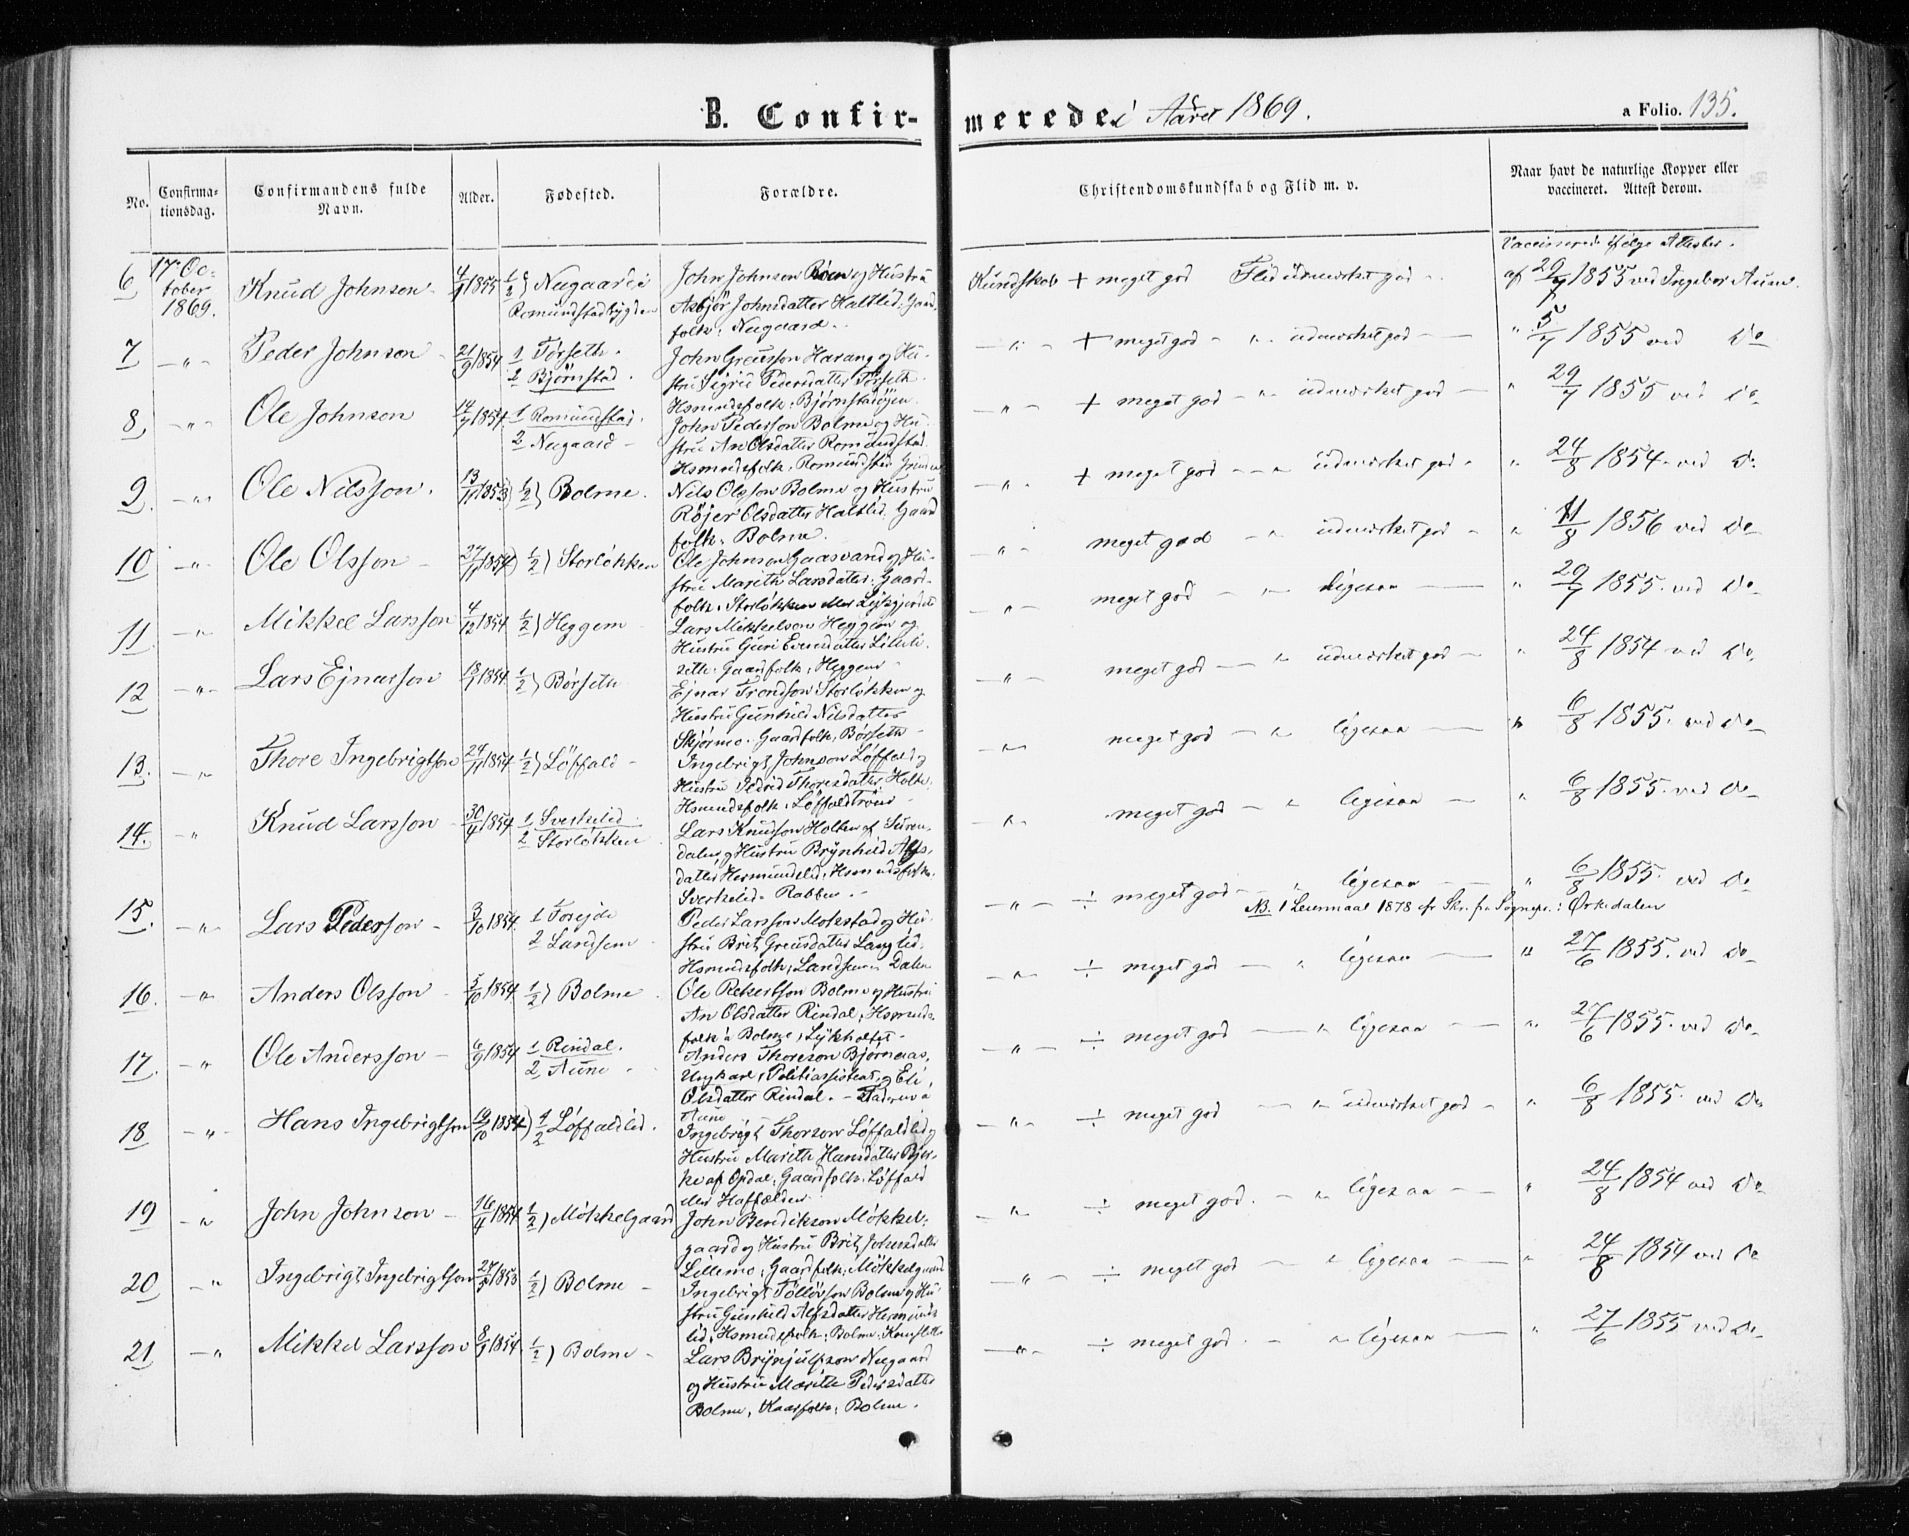 B. Confirmerede i Aåret 1869. a Folio. 135.
No. Confirmationsdag. Confirmandens fulde Navn. Alder. Fødested. Forældre. Christendomskundskab og Flid m. v. Naar havt de naturlige Kopper eller vaccineret. Attest derom.
Vaccinerede ifølge Attester.
6 17 October 1869. Knud Johnson 1855 1/2} Nugaard i Romundstadbygden John Johnson og Hustru Johnsdatter Haltlid, Gaardfolk, Nugaard. Kundskab + meget god Flid udmærket god af 29/7 1855 ved Ingebor Aune.
7 Peder Johnson 21/9 1854 1 Tørseth. 2 Bjørnstad. John Harang og Hustru Sigrid Pedersdatter Tørseth. Hsmndsfolk, Bjørnstadøyen. + meget god udmærket god 5/7 1855 ved Do
8 Ole Johnson 1854 1 Romundstad. 2 Nugaard John Pederson Bolme og Hustru An Olsdatter Romundstad. Hsmndsfolk, Romundstad + meget god udmærket god 29/7 1855 ved Do
9 Ole Nilsson. 13/11 1853 1/2} Bolme. Nils Olsson Bolme og Hustru Røjer Olsdatter Haltlid. Gaardfolk, Bolme. + meget god udmærket god 24/8 1854 ved Do
10 Ole Olsson 27/11 1854 1/2) Storløkken Ole Johnson Gaasvand og Hustru Marith Larsdatter, Gaardfolk, Storløkken meget god udmærket god 11/8 1856 ved Do
11. Mikkel Larsson 4/12 1854 1/2) Heggem Lars Mikkelson Heggem og Hustru Guri Evensdatter Gaardfolk, Heggem meget god ligesaa 29/7 1855. ved Do
12 Lars Ejnarson 1854 1/2} Børseth Ejnar Trondson Storløkken og Hustru Gunhild Nilsdatter Skjørmo. Gaardfolk, Børseth meget god udmærket god 24/8 1854 ved Do
13. Thore Ingebrigtson 24/11 1854 1/2} Löffald Ingebrigt Johnson Løffald og Hustru Thoresdatter Holte. Hsmndsfolk, Løffaldtrøen meget god ligesaa 6/8 1855. ved Do
14. Knud Larsson 30/4 1854 1 Sverkelid. 2 Storløkken Lars Knudson Holten af Surendalen og Hustru Brynhild Alfsdatter Hermundslid, Hsmndsfolk. Sverkelid Rabben. meget god ligesaa 6/8 1855. ved Do
15. Lars Pederson 3/10 1854. 1 2 Landsem Peder Larsson og Hustru Brit Langlid, Hsmndsfolk, Landsem ÷ meget god ligesaa 6/8 1855. ved Do
NB. 1 Leiermaal 1878 cfr Skr. fra Sognepr. i Ørkedalen
16. Anders Olsson 5/10 1854. 1/2} Bolme Ole Bolme og Hustru An Olsdatter Rindal, Hsmndsfolk å Bolme, ÷ meget god ligesaa 27/6 1855. ved Do
17. Ole Andersson 6/9 1854 1 Rindal. 2 Aune Anders Thoreson Bjørnaas, Ungkarl, Politiassistent, og Eli Olsdatter Rindal. Aune ÷ meget god ligesaa 27/6 1855. ved Do
18 Hans Ingebrigtson 19/10 1854 1/2} Løffaldlid. Ingebrigt Thorson Løffaldlid og Hustru Marith Hansdatter af Opdal, Gaardfolk, Løffald ÷ meget god udmærket god 6/8 1855. ved Do
19 John Johnson 16/4 1854 1/2) Mökkelgaard John Bendikson Møkkelgaard og Hustru Brit Johnsdatter Lillemo, Gaardfolk, Mökkelgaard ÷ meget god. ligesaa 24/8 1854 ved Do
20 Ingebrigt Ingebrigtson 1853 1/2) Bolme Ingebrigt Tölløvson Bolme og Hustru Gunhild Alfsdatter Hermundslid, Hsmndsfolk, Bolme ÷ meget god ligesaa 24/8 1854 ved Do
21 Mikkel Larsson 1854. 1/2) Bolme Lars Brynjulfson Nugaard og Hustru Marith Pedersdatter Bolme, Bolme. ÷ meget god ligesaa 27/6 1855 ved Do